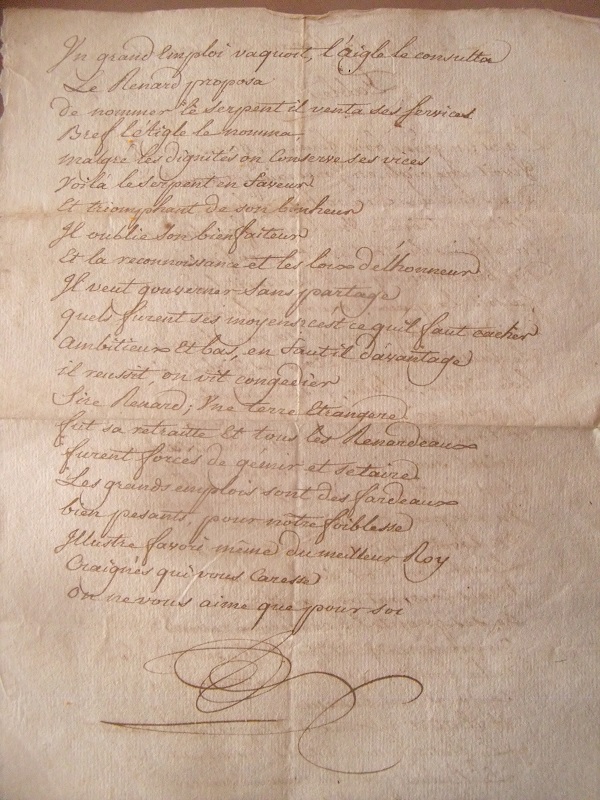 Un grand Emploi vaquoit, l'Aigle le consulta
Le Renard proposa
de nommer le serpent il venta ses services
Bref l'Aigle le nomma,
malgré les dignités on Conserve ses vices
Voilà le serpent en faveur
Et triomphant de son bonheur
Il oublie son bienfaiteur
Et la reconnoissance et les loix de l'honneur
Il veut gouverner sans partage
quels furent ses moyens c'est ce qu'il faut cacher
ambitieux Et bas, en faut il d'avantage
il reussit, on vit congedier
Sire Renard; Une terre Etrangere
fut sa retraitte Et tous les Renardeaux
furent forcés de gémir et se taire
Les grands emplois sont des fardeaux
bien pesants, pour notre foiblesse
Illustre favori même du meilleur Roy
Craignés qui vous Caresse
On ne vous aime que pour soi